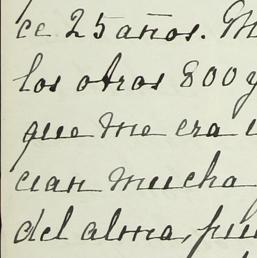 ce 25 años. M
los otros 800 y
que me era
cian mucha
del alma, pu